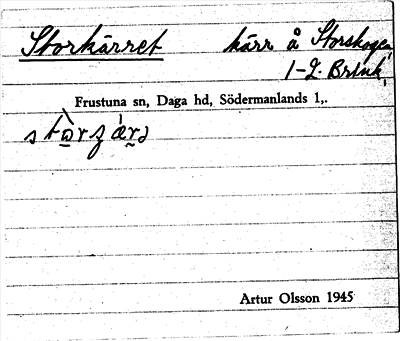 Storkärret kärr å Storskogen,
1-2. Brink,
Frustuna sn, Daga hd, Södermanlands l,.
Artur Olsson 1945